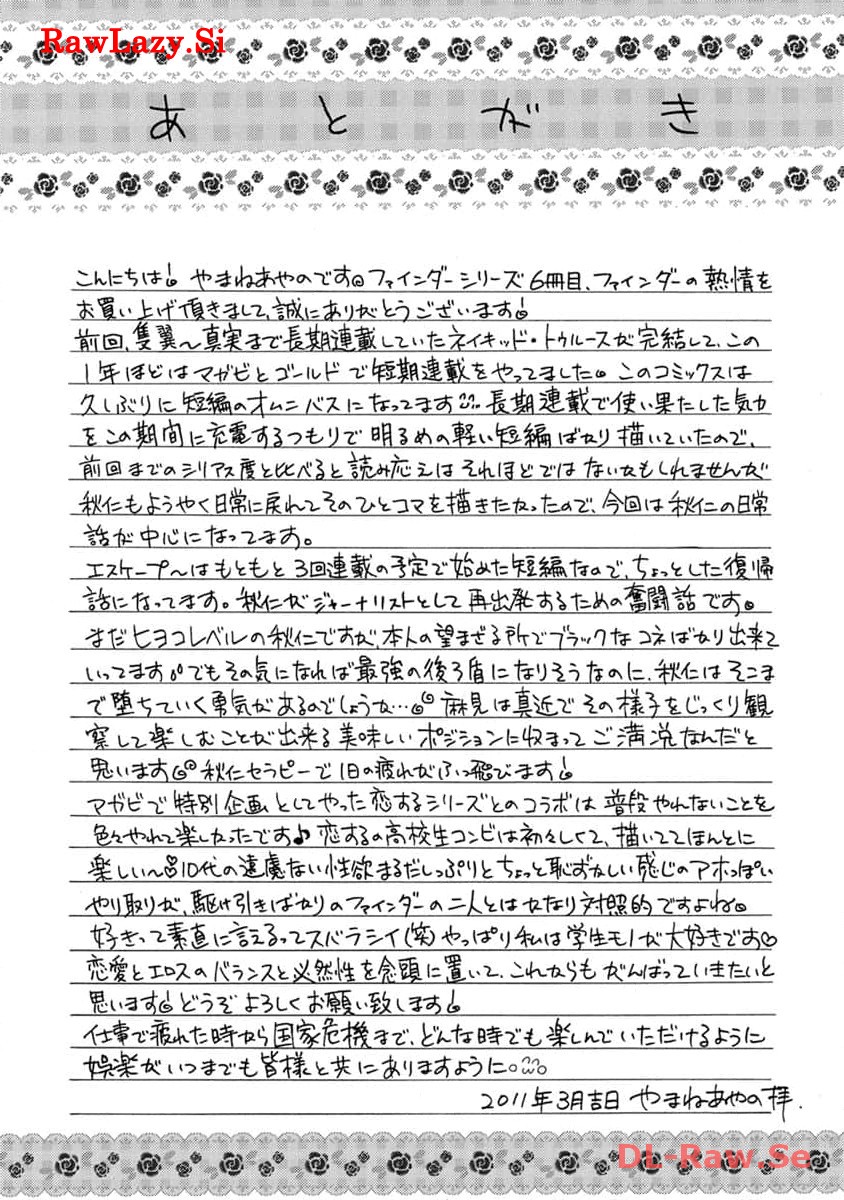 RawLazy.Si
あとがき
こんにちは! やまねあやのです。ファインダーシリーズ6冊目、ファインダーの熱情を
お買い上げ頂きまして、誠にありがとうございます!
前回、隻翼〜真実まで長期連載していたネイキッド・トゥルースが完結して、この
1年ほどはマガビとゴールドで短期連載をやってました。このコミックスは
久しぶりに短編のオムニバスになってます 長期連載で使い果たした気力
をこの期間に充電するつもりで明るめの軽い短編ばかり描いていたので、
前回までのシリアス度と比べると読み応えはそれほどではないかもしれませんが
秋仁もようやく日常に戻れてそのひとコマを描きたかったので、今回は秋仁の日常
話が中心になってます。
エスケープ〜はもともと3回連載の予定で始めた短編なので、ちょっとした復帰
話になってます。秋仁がジャーナリストとして再出発するための奮闘話です。
まだヒヨコレベルの秋仁ですが、本人の望まざる所でブラックなコネばかり出来て
いってます。でもその気になれば最強の後ろ盾になりそうなのに、秋仁はそこま
で堕ちていく勇気があるのでしょうか… 麻見は真近でその様子をじっくり観
察して楽しむことが出来る美味しいポジションに収まってご満悦なんだと
思います 秋仁セラピーで1日の疲れがふっ飛びます!
マガビで特別企画としてやった恋するシリーズとのコラボは普段やれないことを
色々やれて楽しかったです♪恋するの高校生コンビは初々しくて、描いててほんとに
楽しい〜 10代の遠慮ない性欲まるだしっぷりとちょっと恥ずかしい感じのアホっぽい
やり取りが、駆け引きばかりのファインダーの二人とはかなり対照的ですよね。
好きって素直に言えるってスバラシイ(笑)やっぱり私は学生モノが大好きです♡
恋愛とエロスのバランスと必然性を念頭に置いて、これからもがんばっていきたいと
思います!どうぞよろしくお願い致します!
仕事で疲れた時から国家危機まで、どんな時でも楽しんでいただけるように
娯楽がいつまでも皆様と共にありますように。
2011年3月吉日 やまねあやの拝.
DL-Raw.Se